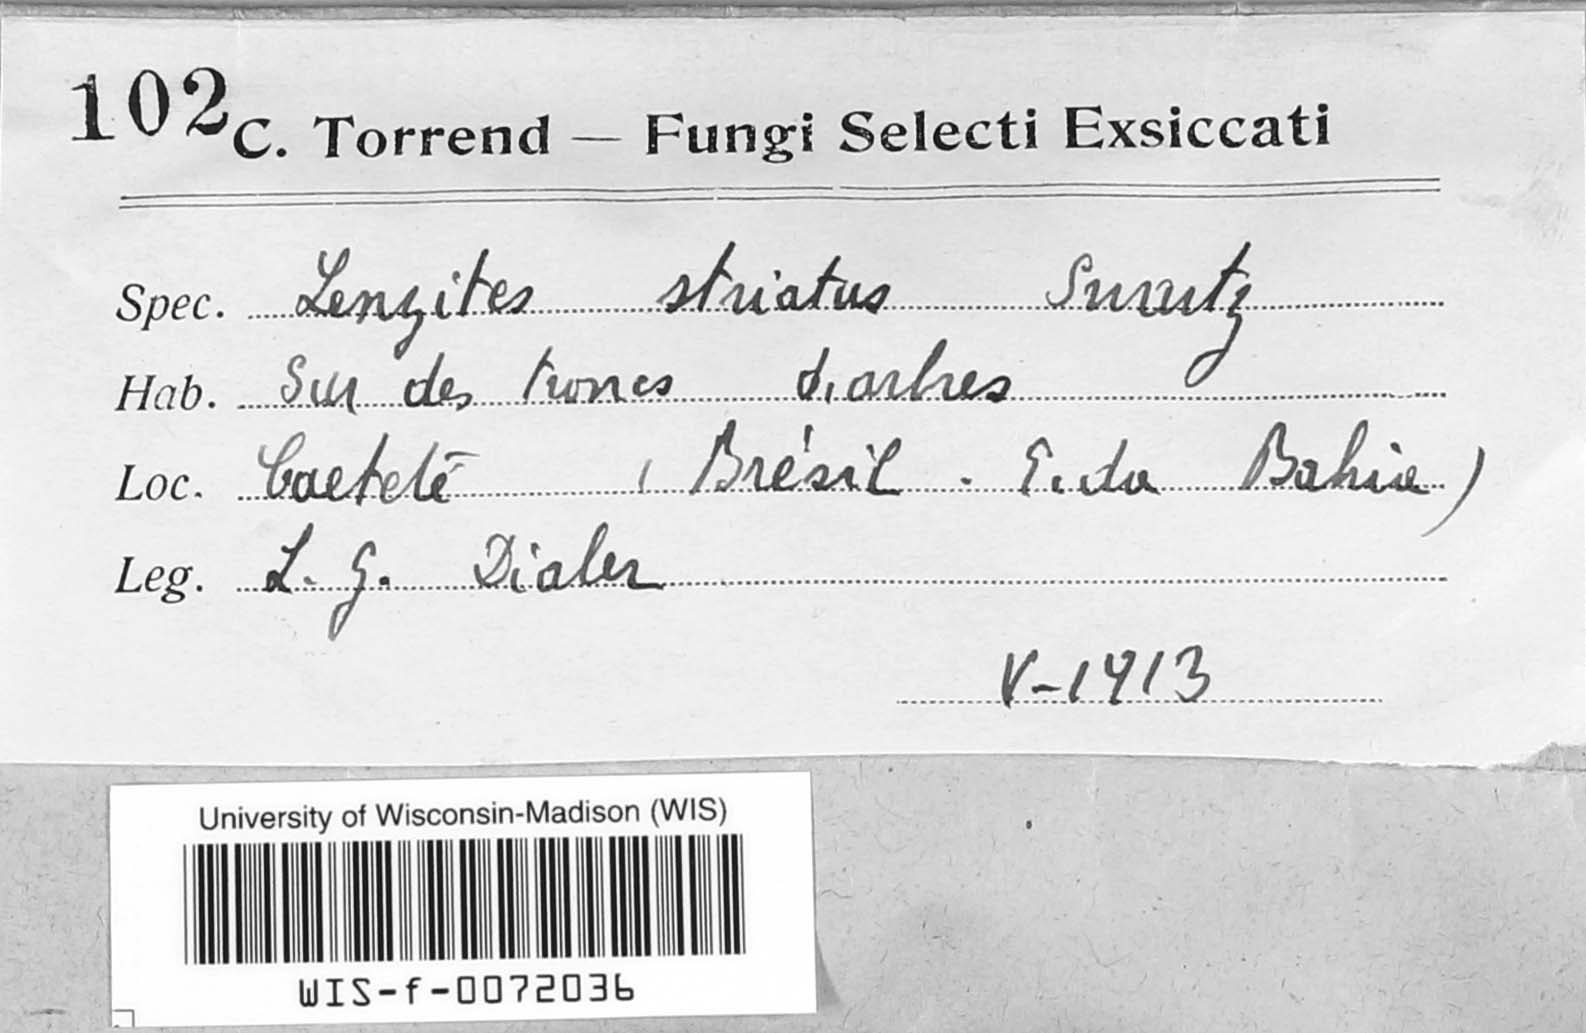 102 C. Torrend — Fungi Selecti Exsiccati
Spec. Lenzites striatus Swartz
Hab. Sur des troncs d'arbres
Loc. Caeteté (Brésil. E. da Bahia)
Leg. L. G. Dialer
V-1913
University of Wisconsin-Madison (WIS)
WIS-f-0072036